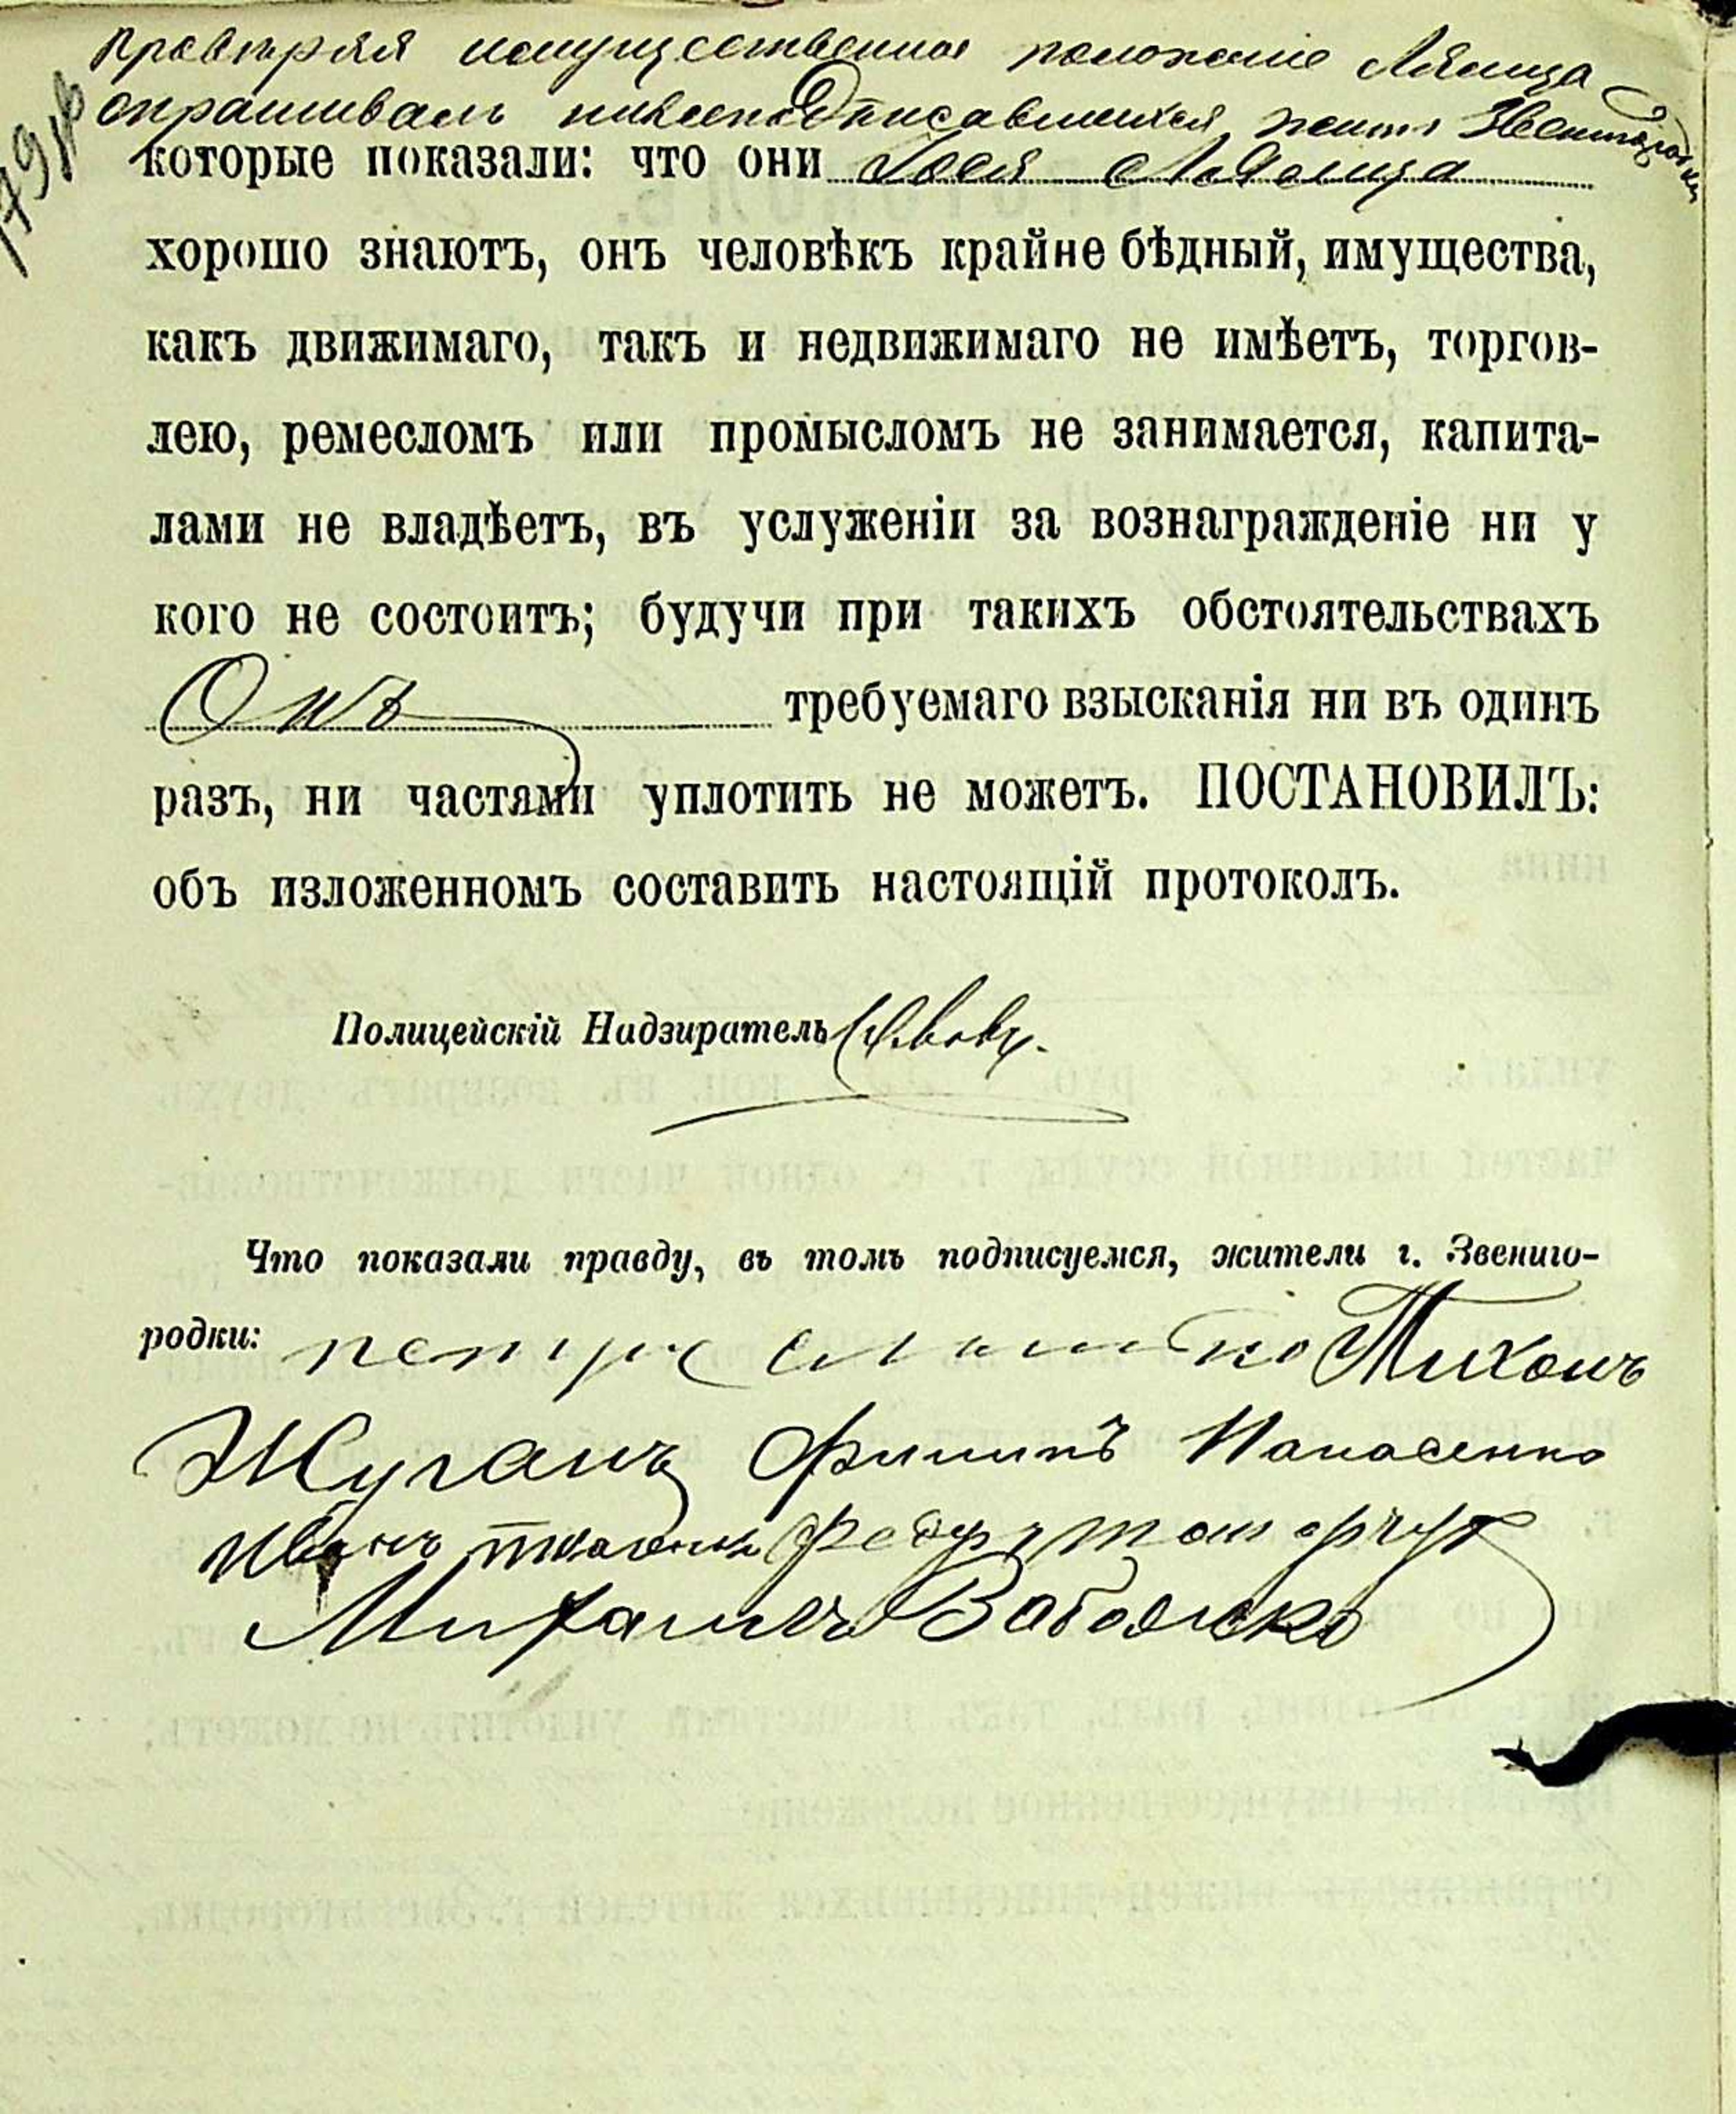 Провѣряя имущественное положеніе
опрашивалъ нижеподписавшихся Звенигородки
которые показали: что они
хорошо знаютъ, онъ человѣкъ крайне бѣдный, имущества,
какъ движимаго, такъ и недвижимаго не имѣетъ, торгов-
лею, ремесломъ или промысломъ не занимается, капита-
лами не владѣетъ, въ услуженіи за вознагражденіе ни у
кого не состоитъ; будучи при такихъ обстоятельствахъ
Онъ требуемаго взысканія ни въ одинъ
разъ, ни частями уплотить не можетъ. ПОСТАНОВИЛЪ:
объ изложенномъ составить настоящій протоколъ.
Полицейскій Надзиратель
Что показали правду, въ томъ подписуемся, жители г. Звениго-
родки: Тихонъ
Жуганъ Филипъ Панасенко
Иванъ
Михаилъ